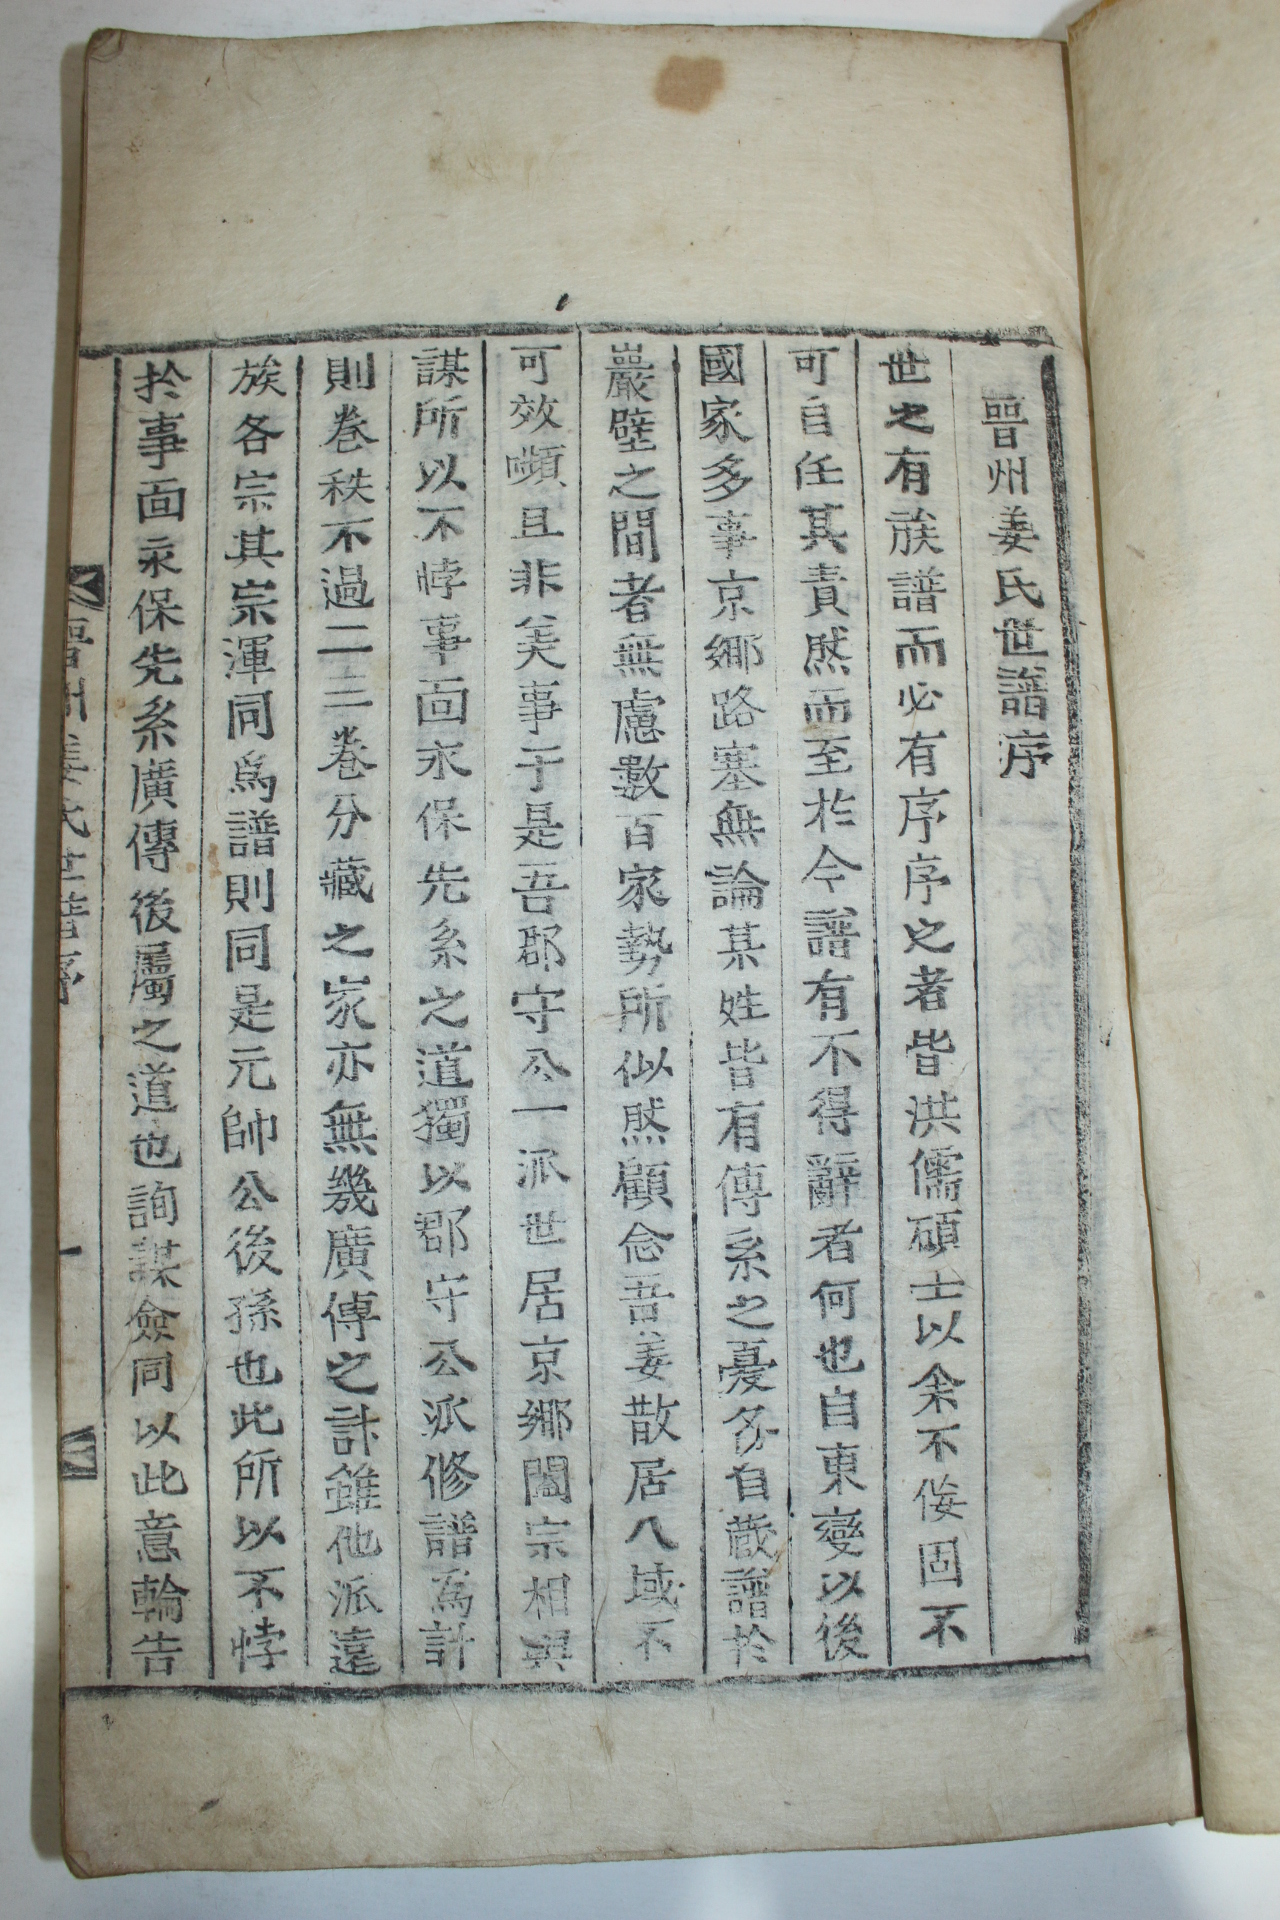 晉州姜氏世譜序
世之有族譜而必有序序之者皆洪儒碩士以余不佞固不
可自任其責然而至於今譜有不得辭者何也自東變以後
國家多事京鄉路塞無論某姓皆有傳系之憂多自蕆譜於
巖壁之間者無慮數百家勢所似然顧念吾姜散居八域不
可效嚬且非美事于是吾郡守公一派世居京鄉闔宗相與
謀所以不悖事面永保先系之道獨以郡守公派修譜爲計
則卷秩不過二三卷分藏之家亦無幾廣傳之計雖他派遠
族各宗其宗渾同爲譜則同是元帥公後孫也此所以不悖
於事面永保先系廣傳後屬之道也詢謀僉同以此意輪告
晉州姜氏世譜序
一